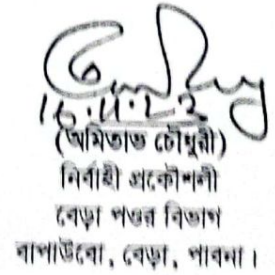 16.11.22
(অমিতাভ চৌধুরী)
নির্বাহী প্রকৌশলী
বেড়া পওর বিভাগ
বাপাউবো, বেড়া, পাবনা।